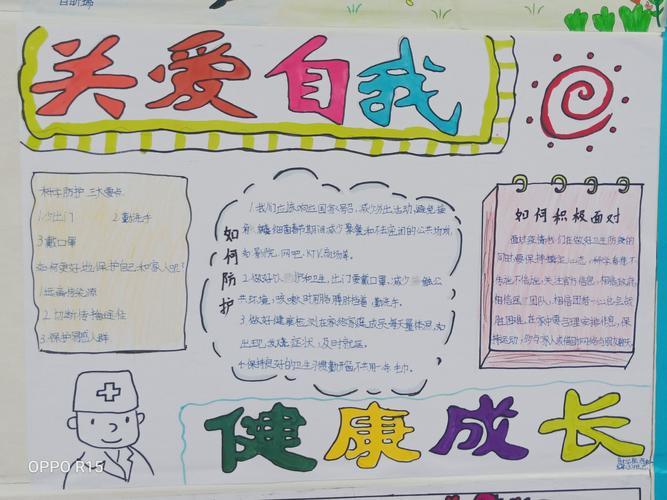 关爱自我
科学防护 三大要点
1少出门 2勤洗手
3戴口罩
如何更好地保护自己和家人呢?
1远离传染源
2切断传播途径
3保护易感人群
如何防护
1我们应该响应国家号召,减少外出活动,避免
春节期间减少聚餐和不去密闭的公共场所,
如:影院、网吧、KTV、商场等。
2.做好 护和卫生,出门要戴口罩,减少 触公
共环境,咳嗽时用 勤洗手。
3.做好健康 测在家给家庭成员每天量体温,如
出现发烧症状,及时就医。
4.保持良好的卫生习惯勤开窗不共用一条毛巾。
如何积极面对
面对疫情我们在做好卫生防疫的
同时要保持镇定心态,科学看待不
传谣不信谣,关注官方信息,相信政府,
相信医 团队,相信团结一心必会战
胜困难,在家中要合理安排作息,保
持运动,
健康成长
OPPO R15